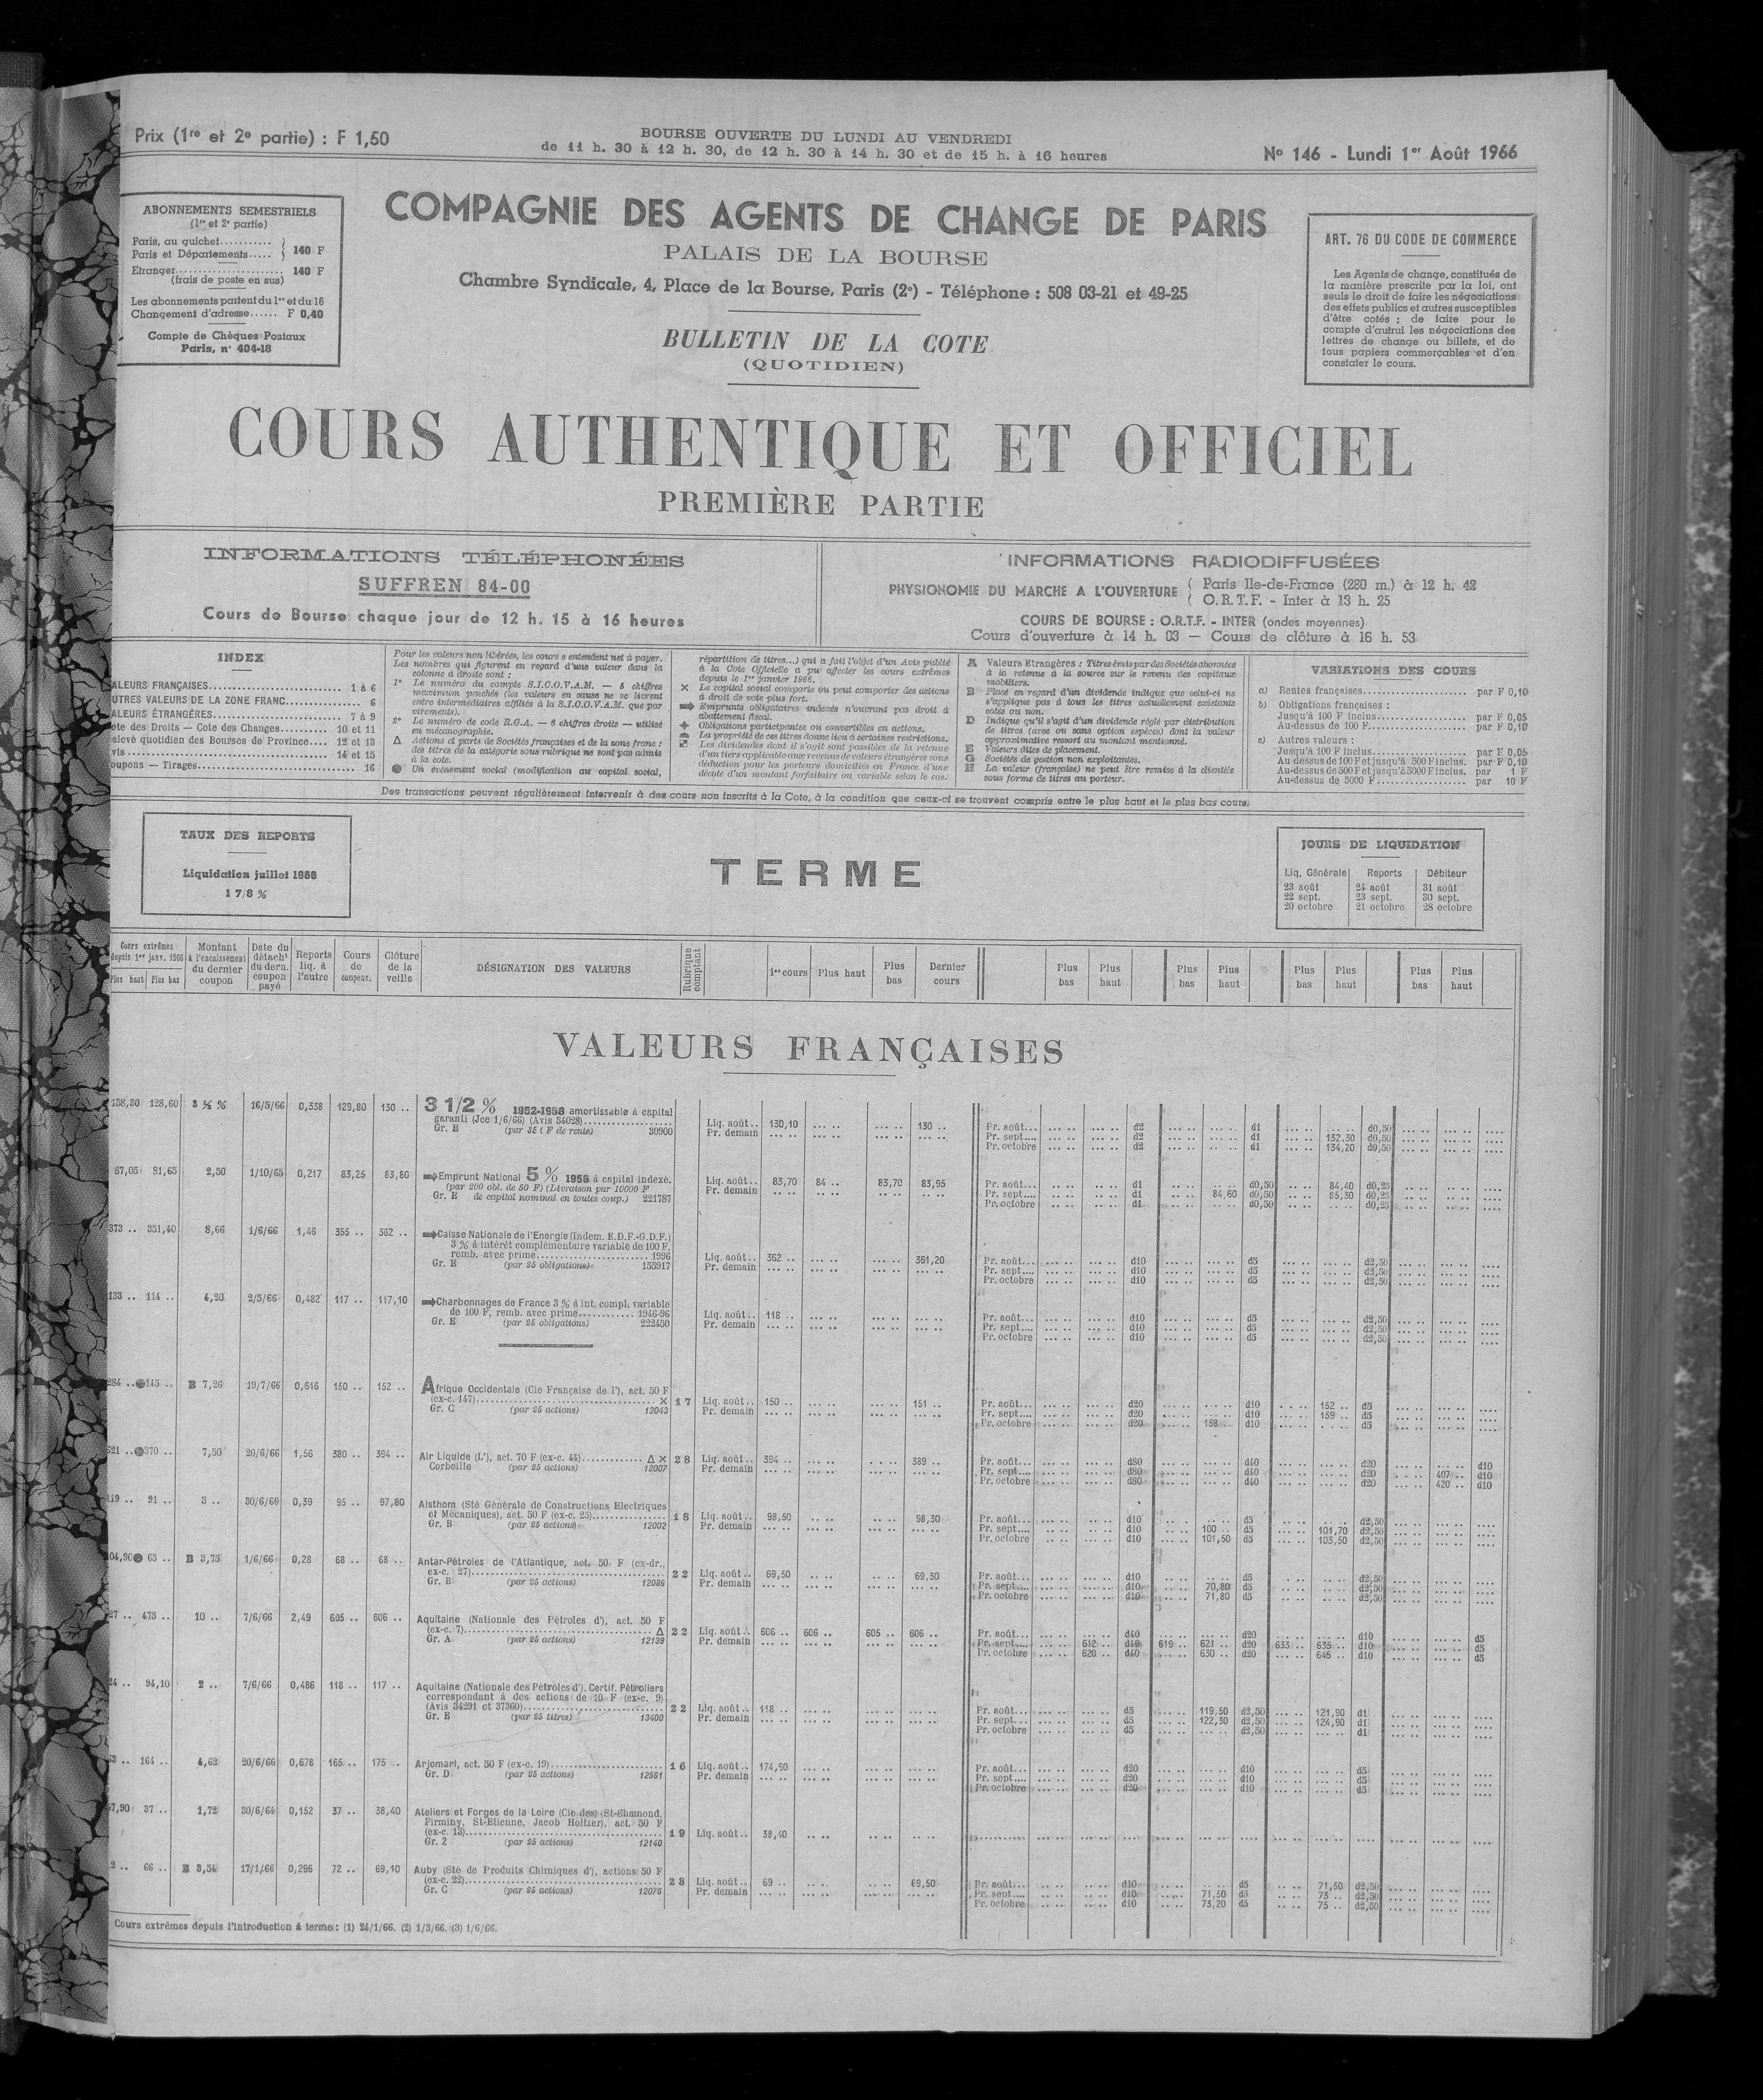 Prix (1re et 2e partie) : F 1,50
BOURSE OUVERTE DU LUNDI AU VENDREDI
de 11 h. 30 à 12 h. 30, de 12 h. 30 à 14 h. 30 et de 15 h. à 16 heures
No 146 - Lundi 1er Août 1966
ABONNEMENTS SEMESTRIELS
(1re et 2e partie)
Paris, au guichet...........
Paris et Départements..... } 140 F
Etranger...................... 140 F
(frais de poste en sus)
Les abonnements partent du 1er et du 16
Changement d'adresse...... F 0,40
Compte de Chèques Postaux
Paris, n° 404-18
COMPAGNIE DES AGENTS DE CHANGE DE PARIS
PALAIS DE LA BOURSE
Chambre Syndicale, 4, Place de la Bourse, Paris (2e) - Téléphone : 508 03-21 et 49-25
BULLETIN DE LA COTE
(QUOTIDIEN)
ART. 76 DU CODE DE COMMERCE
Les Agents de change, constitués de
la manière prescrite par la loi, ont
seuls le droit de faire les négociations
des effets publics et autres susceptibles
d'être cotés ; de faire pour le
compte d'autrui les négociations des
lettres de change ou billets, et de
tous papiers commerçables et d'en
constater le cours.
COURS AUTHENTIQUE ET OFFICIEL
PREMIÈRE PARTIE
INFORMATIONS TÉLÉPHONÉES
SUFFREN 84-00
Cours de Bourse chaque jour de 12 h. 15 à 16 heures
INFORMATIONS RADIODIFFUSÉES
PHYSIONOMIE DU MARCHE A L'OUVERTURE { Paris Ile-de-France (280 m.) à 12 h. 42
O.R.T.F. - Inter à 13 h. 25
COURS DE BOURSE : O.R.T.F. - INTER (ondes moyennes)
Cours d'ouverture à 14 h. 03 — Cours de clôture à 16 h. 53
INDEX
ALEURS FRANÇAISES........ 1 à 6
UTRES VALEURS DE LA ZONE FRANC........ 6
ALEURS ÉTRANGÈRES........ 7 à 9
ote des Droits — Cote des Changes........ 10 et 11
elevé quotidien des Bourses de Province.... 12 et 13
vis........ 14 et 15
oupons — Tirages........ 16
Pour les valeurs non libérées, les cours s'entendent net à payer.
Les nombres qui figurent en regard d'une valeur dans la
colonne à droite sont :
1° Le numéro du compte S.I.C.O.V.A.M. — 5 chiffres
maximum penchés (les valeurs en cause ne se livrent
entre intermédiaires affiliés à la S.I.C.O.V.A.M. que par
virements).
2° Le numéro de code R.G.A. — 6 chiffres droits — utilisé
en mécanographie.
Δ Actions et parts de Sociétés françaises et de la zone franc :
des titres de la catégorie sous rubrique ne sont pas admis
à la cote.
● Un événement social (modification au capital social,
répartition de titres...) qui a fait l'objet d'un Avis publié
à la Cote Officielle a pu affecter les cours extrêmes
depuis le 1er janvier 1966.
× Le capital social comporte ou peut comporter des actions
à droit de vote plus fort.
Emprunts obligataires indexés n'ouvrant pas droit à
abattement fiscal.
Obligations participantes ou convertibles en actions.
La propriété de ces titres donne lieu à certaines restrictions.
Les dividendes dont il s'agit sont passibles de la retenue
d'un tiers applicable aux revenus de valeurs étrangères sous
déduction pour les porteurs domiciliés en France d'une
décote d'un montant forfaitaire ou variable selon le cas.
A Valeurs Etrangères : Titres émis par des Sociétés abonnées
à la retenue à la source sur le revenu des capitaux
mobiliers.
B Placé en regard d'un dividende indique que celui-ci ne
s'applique pas à tous les titres actuellement existants
cotés ou non.
D Indique qu'il s'agit d'un dividende réglé par distribution
de titres (avec ou sans option espèces) dont la valeur
approximative ressort au montant mentionné.
E Valeurs dites de placement.
G Sociétés de gestion non exploitantes.
H La valeur (française) ne peut être remise à la clientèle
sous forme de titres au porteur.
VARIATIONS DES COURS
a) Rentes françaises........ par F 0,10
b) Obligations françaises :
Jusqu'à 100 F inclus........ par F 0,05
Au-dessus de 100 F........ par F 0,10
c) Autres valeurs :
Jusqu'à 100 F inclus........ par F 0,05
Au dessus de 100 F et jusqu'à 500 F inclus. par F 0,10
Au-dessus de 500 F et jusqu'à 5000 F inclus. par 1 F
Au-dessus de 5000 F........ par 10 F
Des transactions peuvent régulièrement intervenir à des cours non inscrits à la Cote, à la condition que ceux-ci se trouvent compris entre le plus haut et le plus bas cours.
TAUX DES REPORTS
Liquidation juillet 1966
1 7/8 %
TERME
JOURS DE LIQUIDATION
Liq. Générale Reports Débiteur
23 août 24 août 31 août
22 sept. 23 sept. 30 sept.
20 octobre 21 octobre 28 octobre
Cours extrêmes depuis 1er janv. 1966 Plus haut Plus bas
Montant à l'encaissement du dernier coupon
Date du détacht du dern. coupon payé
Reports liq. à l'autre
Cours de compens.
Clôture de la veille
DÉSIGNATION DES VALEURS
Rubrique comptant
1er cours Plus haut Plus bas Dernier cours
Plus bas Plus haut Plus bas Plus haut Plus bas Plus haut Plus bas Plus haut
VALEURS FRANÇAISES
138,80 128,60 3 ½ % 16/5/66 0,338 129,80 130 .. 3 1/2 % 1952-1958 amortissable à capital
garanti (Jce 1/6/66) (Avis 34028)........ Liq. août.. 130,10 130 .. Pr. août... d2 d1 d0,50
Gr. E (par 35 F de rente) 30900 Pr. demain Pr. sept.... d2 d1 132,30 d0,50
Pr. octobre d2 d1 134,20 d0,50
87,05 81,65 2,50 1/10/65 0,217 83,25 83,80 Emprunt National 5 % 1956 à capital indexé.
(par 200 obl. de 50 F) (Livraison par 10000 F Liq. août.. 83,70 84 .. 83,70 83,95 Pr. août... d1 d0,50 84,40 d0,25
Gr. E de capital nominal en toutes coup.) 221787 Pr. demain Pr. sept.... d1 84,60 d0,50 85,30 d0,25
Pr. octobre d1 d0,50 d0,25
373 .. 351,40 8,66 1/6/66 1,46 355 .. 362 .. Caisse Nationale de l'Energie (Indem. E.D.F.-G.D.F.)
3 % à intérêt complémentaire variable de 100 F,
remb. avec prime........ 1996 Liq. août.. 362 .. 361,20 Pr. août... d10 d5 d2,50
Gr. E (par 25 obligations) 155917 Pr. demain Pr. sept.... d10 d5 d2,50
Pr. octobre d10 d5 d2,50
133 .. 114 .. 4,20 2/5/66 0,482 117 .. 117,10 Charbonnages de France 3 % à int. compl. variable
de 100 F, remb. avec prime........ 1946-96 Liq. août.. 118 .. Pr. août... d10 d5 d2,50
Gr. E (par 25 obligations) 222450 Pr. demain Pr. sept.... d10 d5 d2,50
Pr. octobre d10 d5 d2,50
284 .. ● 145 .. B 7,26 19/7/66 0,616 150 .. 152 .. Afrique Occidentale (Cie Française de l'), act. 50 F
(ex-c. 147)........ × 17 Liq. août.. 150 .. 151 .. Pr. août... d20 d10 152 .. d5
Gr. C (par 25 actions) 12043 Pr. demain Pr. sept.... d20 d10 159 .. d5
Pr. octobre d20 158 .. d10 d5
521 .. ● 370 .. 7,50 20/6/66 1,56 380 .. 394 .. Air Liquide (L'), act. 70 F (ex-c. 44)........ Δ × 28 Liq. août.. 394 .. 389 .. Pr. août... d80 d40 d20 d10
Corbeille (par 25 actions) 12007 Pr. demain Pr. sept.... d80 d40 d20 407 .. d10
Pr. octobre d80 d40 d20 420 .. d10
119 .. 91 .. 3 .. 30/6/66 0,39 95 .. 97,80 Alsthom (Sté Générale de Constructions Electriques
et Mécaniques), act. 50 F (ex-c. 25)........ 18 Liq. août.. 98,50 98,30 Pr. août... d10 d5 d2,50
Gr. B (par 25 actions) 12002 Pr. demain Pr. sept.... d10 100 .. d5 101,70 d2,50
Pr. octobre d10 101,50 d5 103,50 d2,50
104,90 ● 65 .. B 3,75 1/6/66 0,28 68 .. 68 .. Antar-Pétroles de l'Atlantique, act. 50 F (ex-dr.,
ex-c. 27)........ 22 Liq. août.. 69,50 69,30 Pr. août... d10 d5 d2,50
Gr. B (par 25 actions) 12086 Pr. demain Pr. sept.... d10 70,80 d5 d2,50
Pr. octobre d10 71,80 d5 d2,50
27 .. 475 .. 10 .. 7/6/66 2,49 605 .. 606 .. Aquitaine (Nationale des Pétroles d'), act. 50 F
(ex-c. 7)........ Δ 22 Liq. août.. 606 .. 606 .. 605 .. 606 .. Pr. août... d40 d20 d10 d5
Gr. A (par 25 actions) 12139 Pr. demain Pr. sept.... 612 .. d40 619 .. 621 .. d20 633 .. 635 .. d10 d5
Pr. octobre 620 .. d40 630 .. d20 645 .. d10 d5
24 .. 94,10 2 .. 7/6/66 0,486 118 .. 117 .. Aquitaine (Nationale des Pétroles d'). Certif. Pétroliers
correspondant à des actions de 10 F (ex-c. 9)
(Avis 34291 et 37360)........ 22 Liq. août.. 118 .. Pr. août... d5 119,50 d2,50 121,90 d1
Gr. E (par 25 titres) 13400 Pr. demain Pr. sept.... d5 122,30 d2,50 124,90 d1
Pr. octobre d5 d2,50 d1
3 .. 164 .. 4,62 20/6/66 0,678 165 .. 175 .. Arjomari, act. 50 F (ex-c. 19)........ 16 Liq. août.. 174,60 Pr. août... d20 d10 d5
Gr. D (par 25 actions) 12561 Pr. demain Pr. sept.... d20 d10 d5
Pr. octobre d20 d10 d5
7,90 37 .. 1,72 30/6/64 0,152 37 .. 38,40 Ateliers et Forges de la Loire (Cie des) (St-Chamond,
Firminy, St-Etienne, Jacob Holtzer), act. 50 F
(ex-c. 13)........ 19 Liq. août.. 38,40
Gr. 2 (par 25 actions) 12140
2 .. 66 .. B 3,54 17/1/66 0,296 72 .. 69,10 Auby (Sté de Produits Chimiques d'), actions 50 F
(ex-c. 22)........ 28 Liq. août.. 69 .. 69,50 Pr. août... d10 d5 71,50 d2,50
Gr. C (par 25 actions) 12076 Pr. demain Pr. sept.... d10 71,50 d5 73 .. d2,50
Pr. octobre d10 73,20 d5 75 .. d2,50
Cours extrêmes depuis l'introduction à terme : (1) 24/1/66. (2) 1/3/66. (3) 1/6/66.